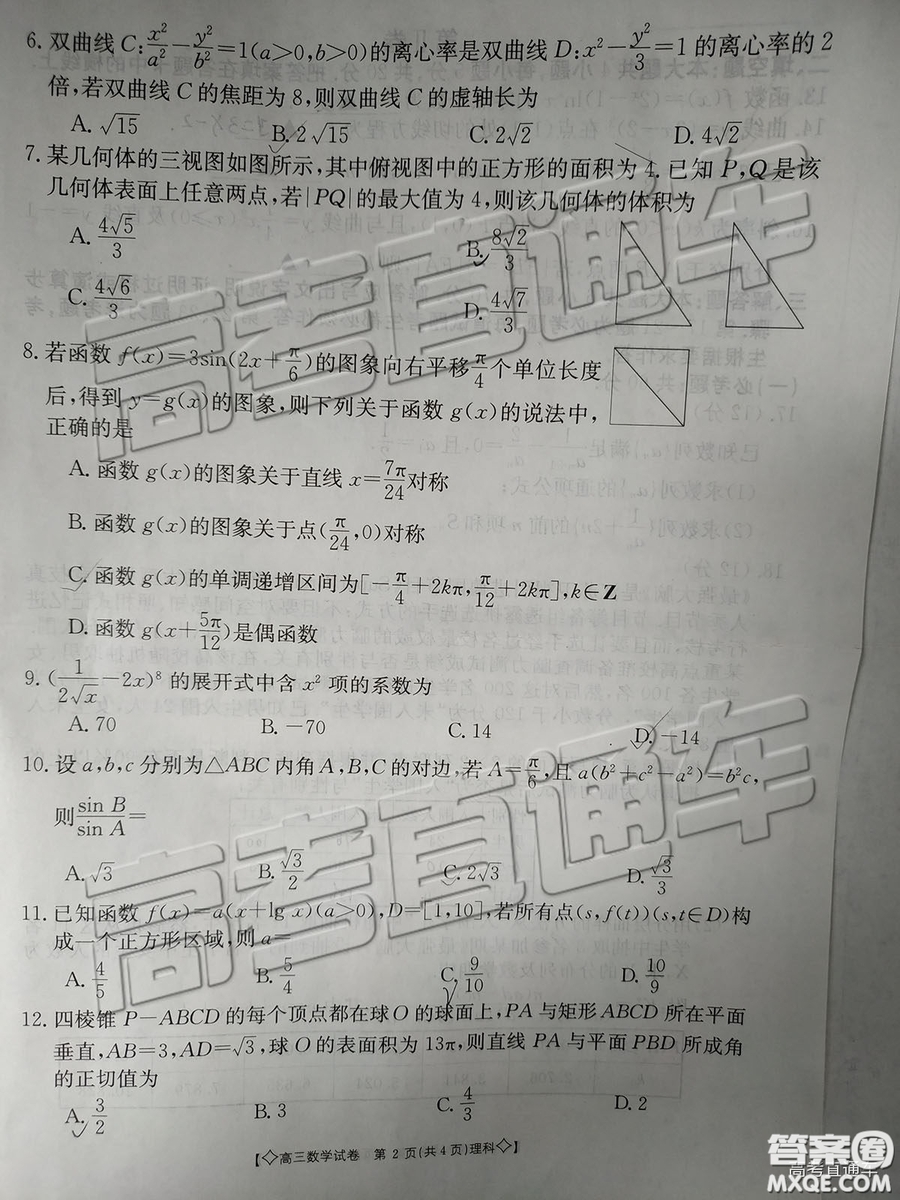 6. 双曲线 C: x²/a² − y²/b² = 1(a>0,b>0)的离心率是双曲线 D: x² − y²/3 = 1 的离心率的 2
倍,若双曲线 C 的焦距为 8,则双曲线 C 的虚轴长为
A. √15 B. 2√15 C. 2√2 D. 4√2
7. 某几何体的三视图如图所示,其中俯视图中的正方形的面积为 4. 已知 P,Q 是该
几何体表面上任意两点,若|PQ|的最大值为 4,则该几何体的体积为
A. 4√5/3 B. 8√2/3
C. 4√6/3 D. 4√7/3
8. 若函数 f(x)=3sin(2x+π/6)的图象向右平移π/4个单位长度
后,得到 y=g(x)的图象,则下列关于函数 g(x)的说法中,
正确的是
A. 函数 g(x)的图象关于直线 x=7π/24对称
B. 函数 g(x)的图象关于点(π/24,0)对称
C. 函数 g(x)的单调递增区间为[−π/4+2kπ,π/12+2kπ],k∈Z
D. 函数 g(x+5π/12)是偶函数
9. (1/(2√x)−2x)⁸ 的展开式中含 x² 项的系数为
A. 70 B. −70 C. 14 D. −14
10. 设 a,b,c 分别为△ABC 内角 A,B,C 的对边,若 A=π/6,且 a(b²+c²−a²)=b²c,
则 sin B/sin A=
A. √3 B. √3/2 C. 2√3 D. √3/3
11. 已知函数 f(x)=a(x+lg x)(a>0),D=[1,10],若所有点(s,f(t))(s,t∈D)构
成一个正方形区域,则 a=
A. 4/5 B. 5/4 C. 9/10 D. 10/9
12. 四棱锥 P−ABCD 的每个顶点都在球 O 的球面上,PA 与矩形 ABCD 所在平面
垂直,AB=3,AD=√3,球 O 的表面积为 13π,则直线 PA 与平面 PBD 所成角
的正切值为
A. 3/2 B. 3 C. 4/3 D. 2
【◇高三数学试卷 第 2 页(共 4 页)理科◇】
高考直通车
高考直通车
答案圈
MXQE.COM
高考直通车